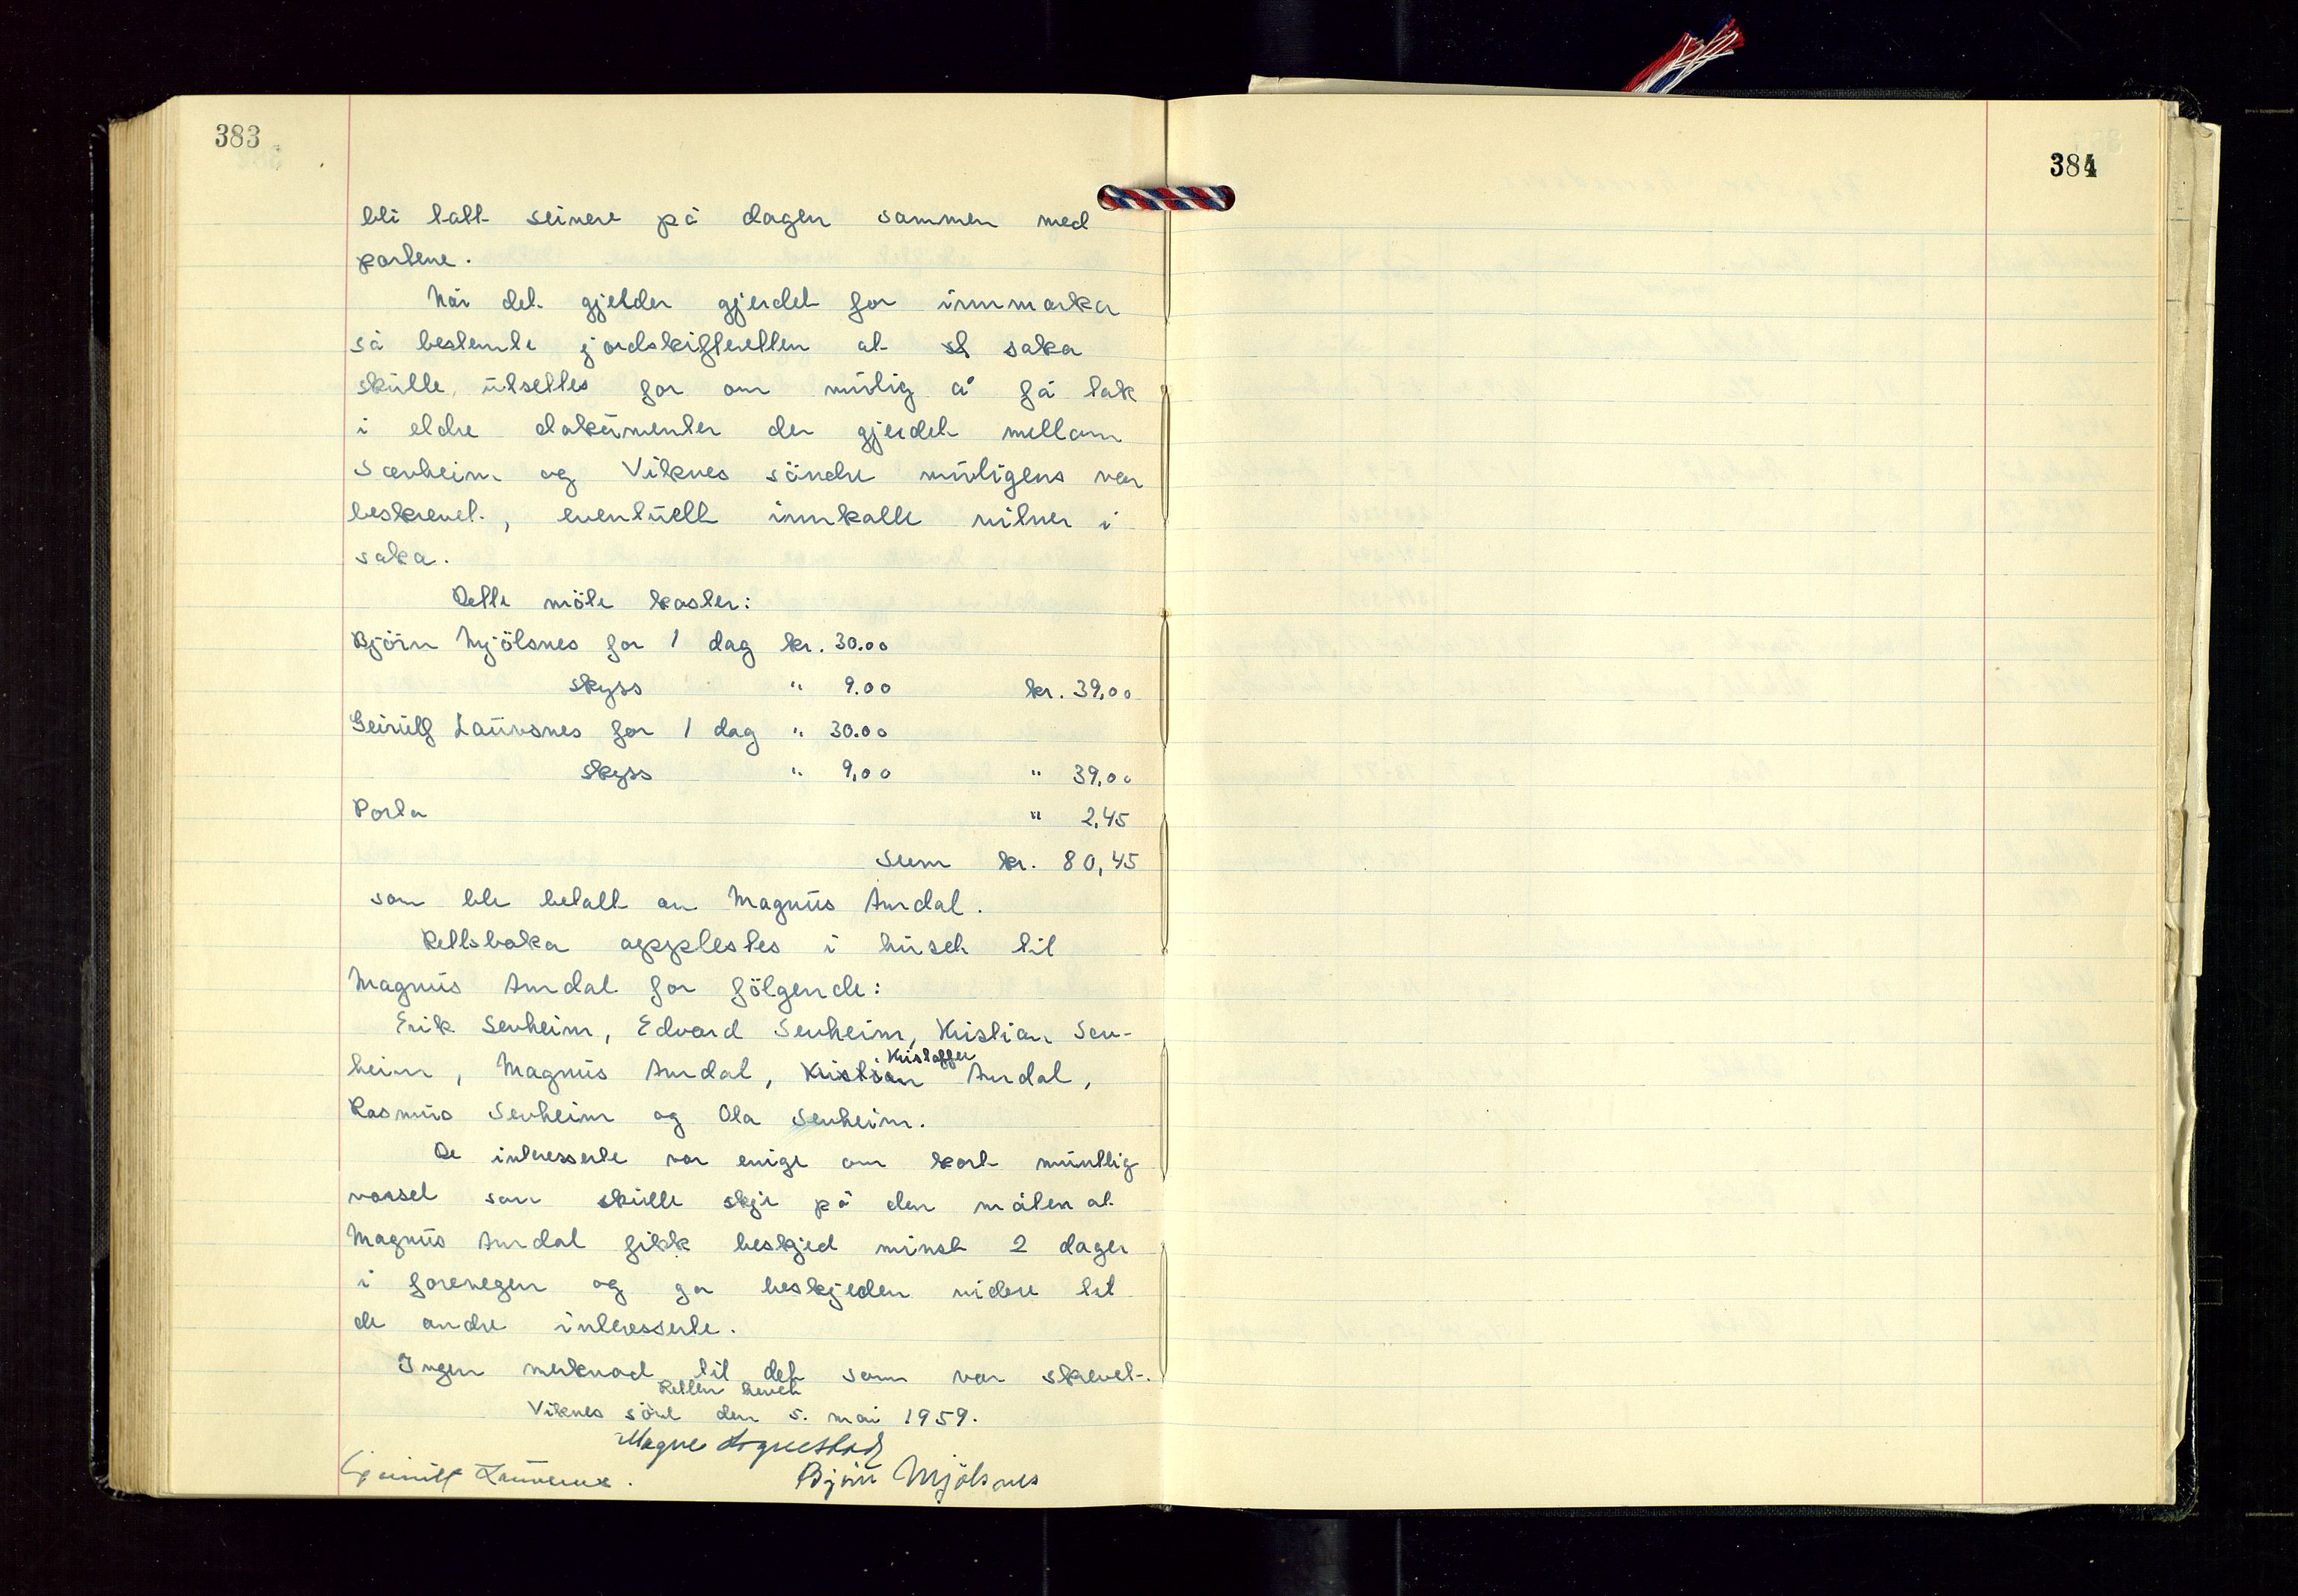 383
384
bli tatt seinere på dagen sammen med
partene.
Når det gjelder gjerdet for innmarka
så bestemte jordskifteretten at saka
skulle utsettes for om mulig å få tak
i eldre dokumenter der gjerdet mellom
Sævheim og Viknes söndre muligens var
beskrevet, eventuelt innkalle vitner i
saka.
Dette möte koster:
Björn Mjölsnes for 1 dag kr. 30.00
skyss " 9.00 kr. 39,00
Geirulf Lauvsnes for 1 dag " 30.00
skyss " 9,00 " 39,00
Porto " 2,45
Sum kr. 80,45
som ble betalt av Magnus Aurdal.
Rettsboka opplestes i huset til
Magnus Aurdal for fölgende:
Erik Sevheim, Edvard Sevheim, Kristian Sev-
Kristoffer
heim, Magnus Aurdal, Kristian Aurdal,
Rasmus Sevheim og Ola Sevheim.
De interesserte var enige om kort muntlig
varsel som skulle skje på den måten at
Magnus Aurdal fikk beskjed minst 2 dager
i forvegen og ga beskjeden videre til
de andre interesserte.
Ingen merknad til det som var skrevet.
Retten hevet
Viknes söre den 5. mai 1959.
Magne
Geirulf Lauvsnes. Björn Mjölsnes